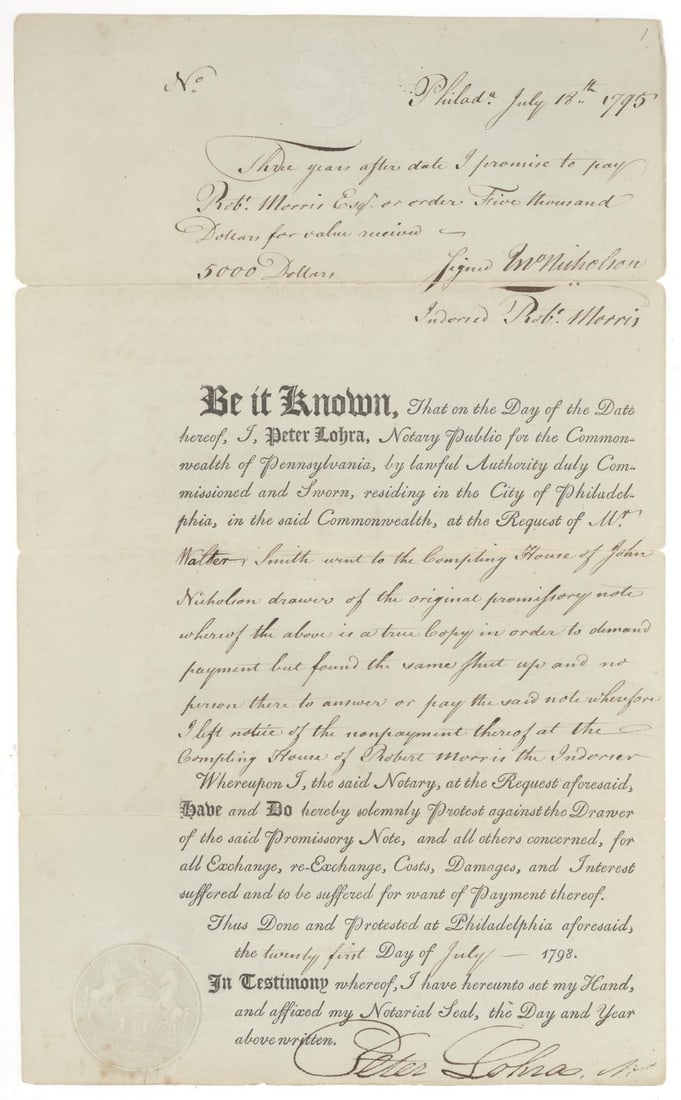 1
No. Philada. July 18th 1795
Three years after date I promise to pay
Robt. Morris Esqr. or order Five thousand
Dollars for value received
5000 Dollars Signed Jno Nicholson
Indorsed Robt. Morris
Be it Known, That on the Day of the Date
hereof, I, Peter Lohra, Notary Public for the Common-
wealth of Pennsylvania, by lawful Authority duly Com-
missioned and Sworn, residing in the City of Philadel-
phia, in the said Commonwealth, at the Request of Mr.
Walter Smith went to the Compting House of John
Nicholson drawer of the original promissory note
whereof the above is a true Copy in order to demand
payment but found the same shut up and no
person there to answer or pay the said note wherefore
I left notice of the nonpayment thereof at the
Compting House of Robert Morris the Indorser
Whereupon I, the said Notary, at the Request aforesaid,
Have and Do hereby solemnly Protest against the Drawer
of the said Promissory Note, and all others concerned, for
all Exchange, re-Exchange, Costs, Damages, and Interest
suffered and to be suffered for want of Payment thereof.
Thus Done and Protested at Philadelphia aforesaid,
the twenty first Day of July — 1798.
In Testimony whereof, I have hereunto set my Hand,
and affixed my Notarial Seal, the Day and Year
above written.
Peter Lohra,